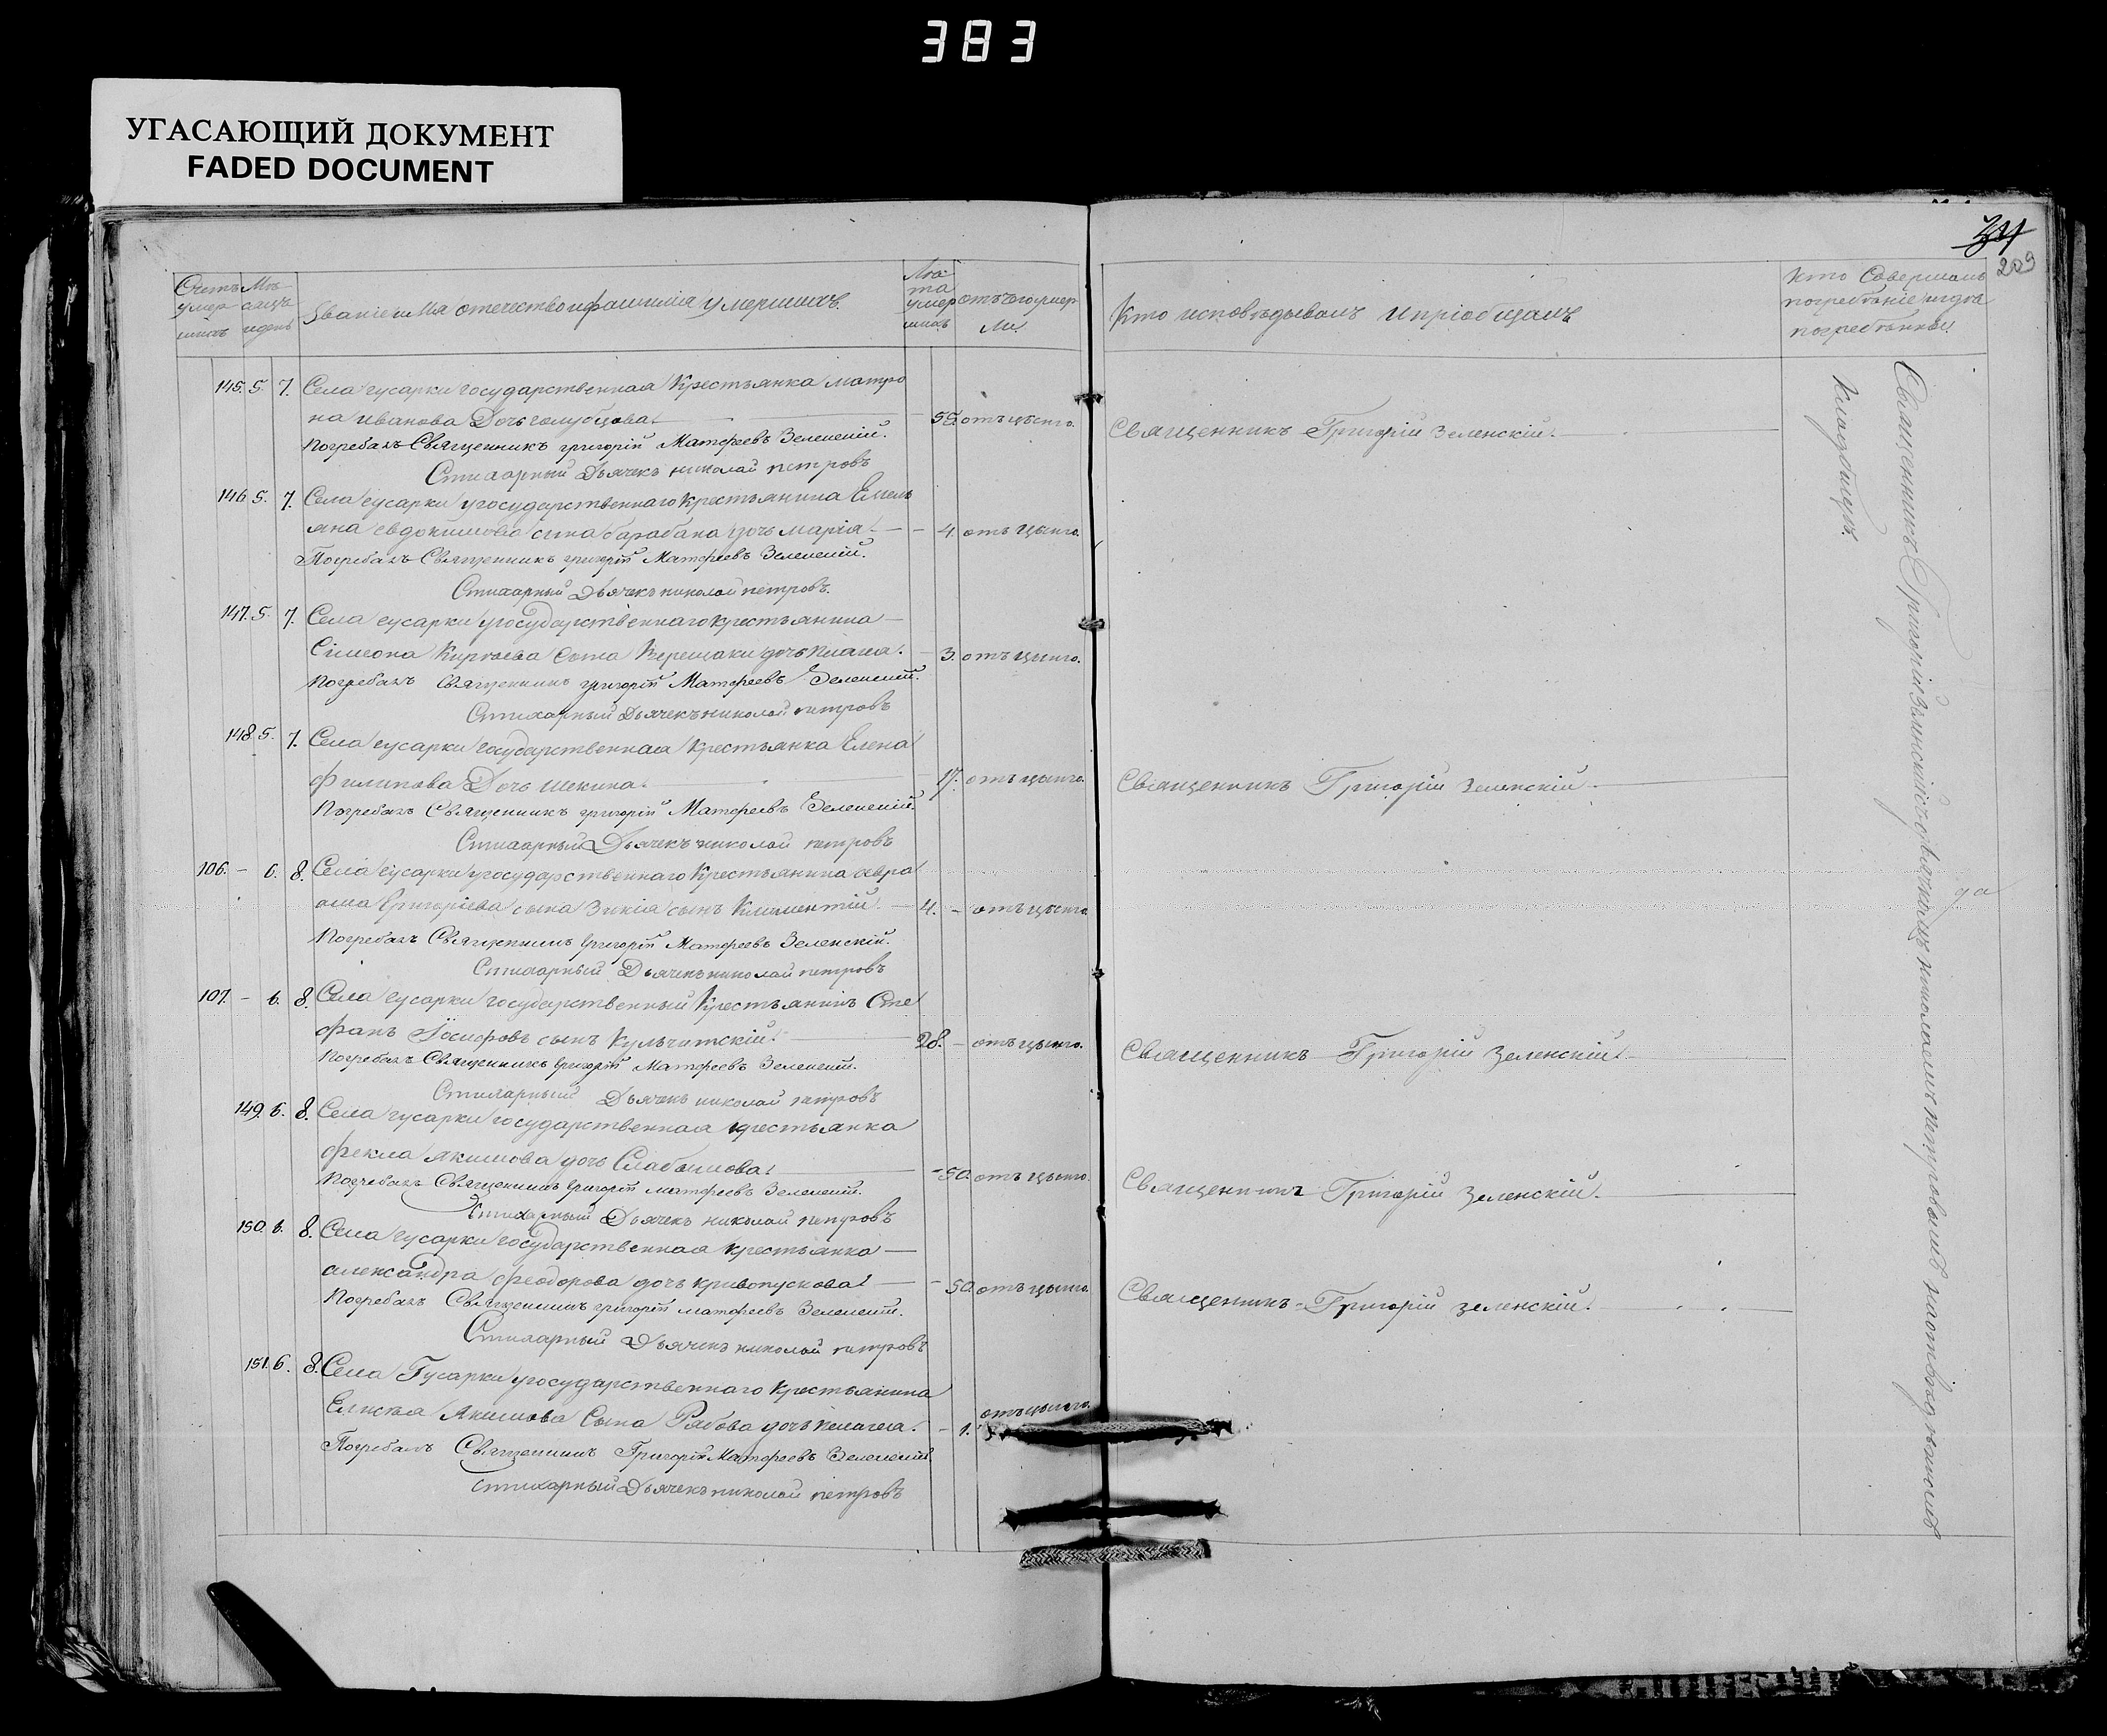 383
УГАСАЮЩИЙ ДОКУМЕНТ
FADED DOCUMENT
34
209
Счетъ умер шихъ
Мѣ сяцъ и день
Званіе имя отечество и фамилія умершихъ.
Лѣ та умер шихъ
отъ чего умер ли.
Кто исповѣдывалъ и пріобщалъ
Кто совершалъ погребеніе и гдѣ погребенны
145. 5. 7. Села гусарки государственная Крестьянка матро
на иванова Дочь голубцова. 55. отъ цынго. Священникъ Григорій Зеленскій.
Погребалъ Священникъ григорій Матфеевъ Зеленскій.
Стихарный Дьячекъ николай петровъ
146. 5. 7. Села гусарки у государственнаго крестьянина Емель
яна евдокимова сина барабана дочь марія. 4. отъ цынго.
Погребалъ Священникъ григорій Матфеевъ Зеленскій.
Стихарный Дьячекъ николай петровъ.
147. 5. 7. Села гусарки у государственнаго крестьянина
Сімеона Сина Верещаки дочь 3. отъ цынго.
Погребалъ Священникъ григорій Матфеевъ Зеленскій.
Стихарный Дьячекъ николай петровъ
148. 5. 7. Села гусарки государственная крестьянка Елена
филипова Дочь шекина. 17. отъ цынго. Священникъ Григорій Зеленскій
Погребалъ Священникъ григорій Матфеевъ Зеленскій.
Стихарный Дьячекъ николай петровъ
106. – 6. 8. Села гусарки у государственнаго крестьянина авра
ама Григоріева сына сынъ Климентій. 4. – отъ цынго.
Погребалъ Священникъ Григорій Матфеевъ Зеленскій.
Стихарный Дьячекъ николай петровъ
107. – 6. 8. Села гусарки государственный Крестьянинъ Сте
фанъ Іосифовъ сынъ Кульчитскій. 28. – отъ цынго. Священникъ Григорій Зеленскій.
Погребалъ Священникъ Григорій Матфеевъ Зеленскій.
Стихарный Дьячекъ николай петровъ
149. 6. 8. Села гусарки государственная крестьянка
фекла якимова дочь Слабышова. 50. отъ цынго. Священникъ Григорій Зеленскій.
Погребалъ Священникъ Григорій матфеевъ Зеленскій.
Стихарный Дьячекъ николай петровъ
150. 6. 8. Села гусарки государственная крестьянка
александра феодорова дочь кривопускова. 50. отъ цынго. Священникъ Григорій Зеленскій.
Погребалъ Священникъ григорій матфеевъ Зеленскій.
Стихарный Дьячекъ николай петровъ
151. 6. 8. Села Гусарки у государственнаго крестьянина
Елисѣя Якимова Сина Рябова дочь пелагея. 1. отъ цынго.
Погребалъ Священникъ Григорій Матфеевъ Зеленскій
стихарный Дьячекъ николай петровъ
Священникъ Григорій Зеленскій николаемъ петровымъ
Кладбищѣ.